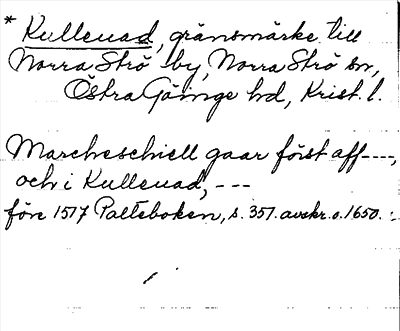 * Kulleuad, gränsmärke till
Norra Strö by, Norra Strö sn,
Östra Göinge hd, Krist. l.
Marcheschiell gaar först aff ----,
och i Kulleuad, ---
före 1517 Palteboken, s. 357. avskr. o. 1650.